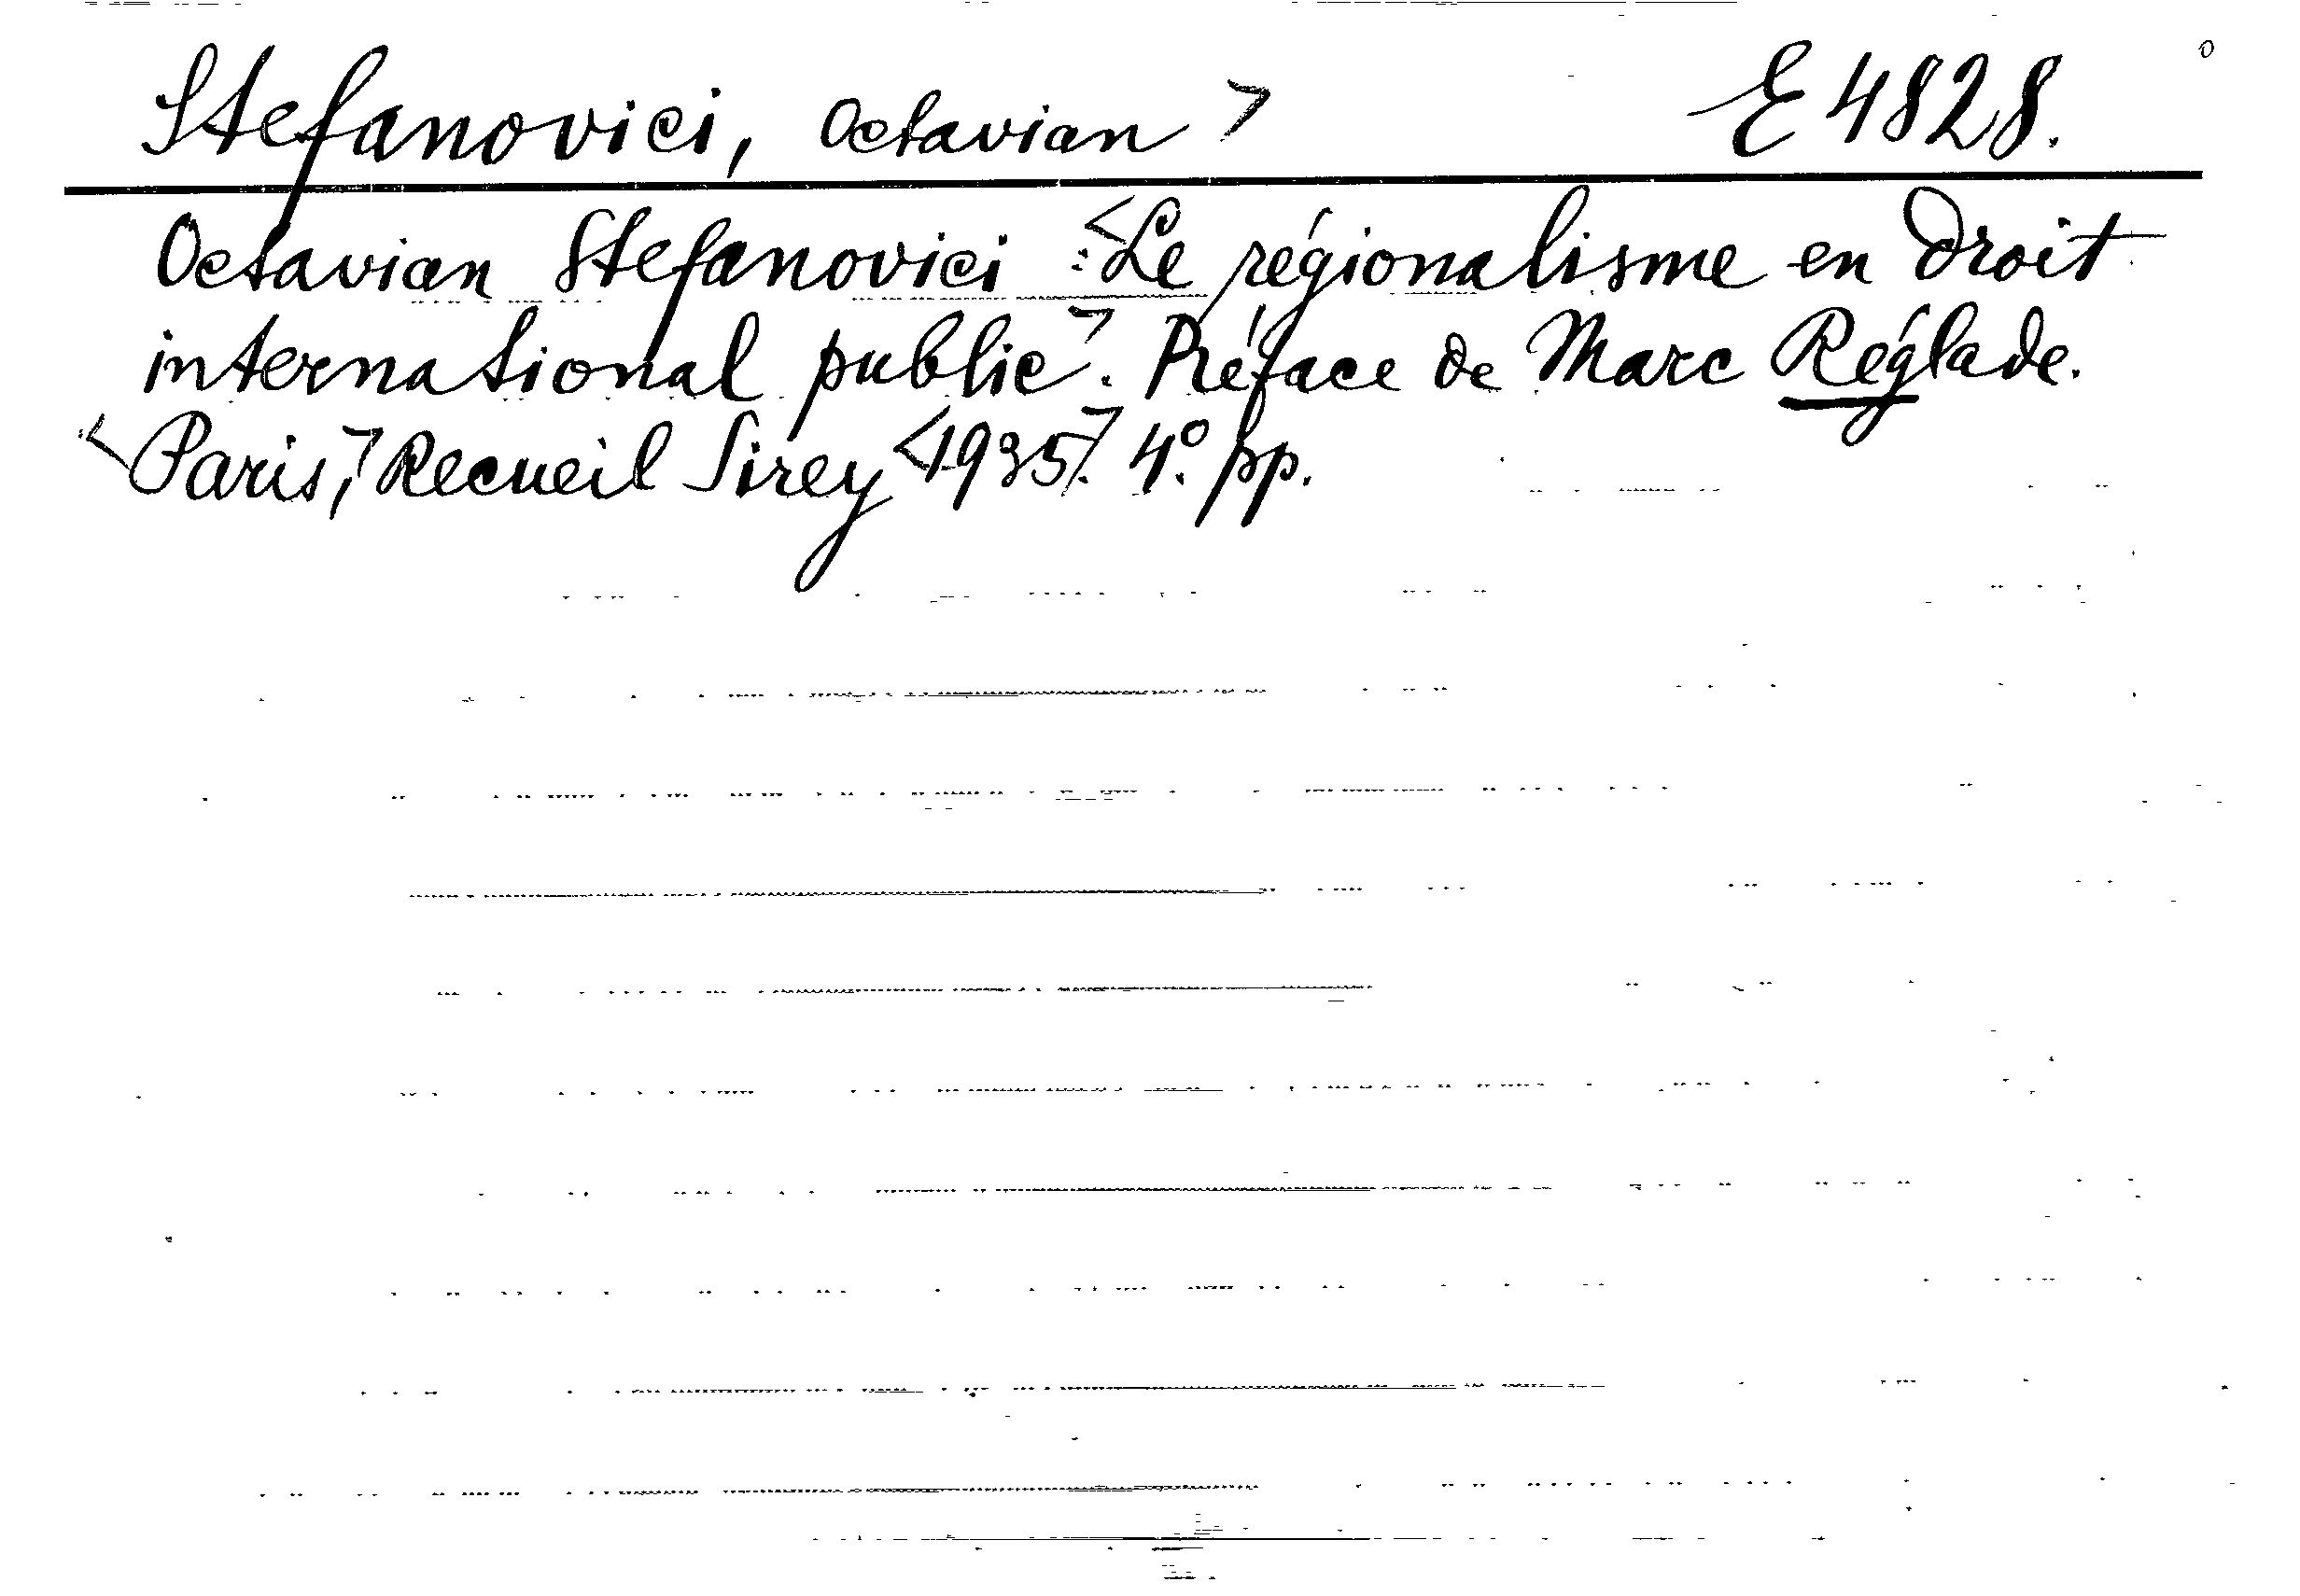 Stefanovici, Octavian > E 4828.
Octavian Stefanovici : <Le régionalisme en droit
international public>. Préface de Marc Réglade.
<Paris,> Recueil Sirey <1935>. 4°. pp.